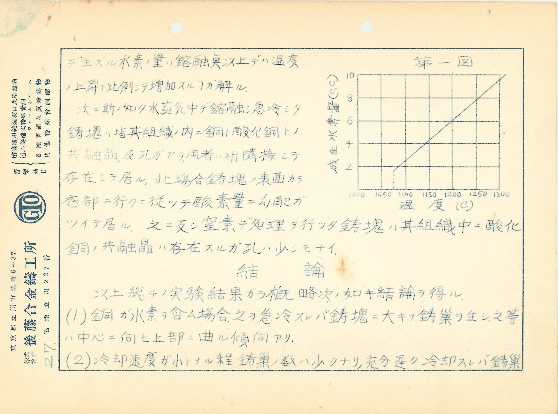 デ生スル水素ノ量ハ熔融臭以上デハ温度
ノ上昇ト比例シテ増加スル ガ解ル。
次ニ斯ノ如ク水蒸気中デ熔融シ急冷シタ
鋳塊ハ皆其組織ノ内ニ銅ト酸化銅トノ
共融晶及孔ガアリ両者ハ相隣接シテ
存在シテ居ル。此場合鋳塊ノ表面カラ
内部ニ行クニ従ッテ酸素量ニ勾配ガ
ツイテ居ル。之ニ反シ窒素デ処理ヲ行ッタ鋳塊ハ其組織中ニ酸化
銅ノ共融晶ハ存在スルガ孔ハ少シモナイ。
結論
以上総テノ実験結果カラ概略次ノ如キ結論ヲ得ル。
(1) 銅ガ水素ヲ含ム場合之ヲ急冷スレバ鋳塊ニ大キナ鋳巣ヲ生シ之等
ハ中心ニ向ヒ上部ニ曲ル傾向アリ。
(2) 冷却速度ガ小トナル程鋳巣ノ数ハ少クナリ、充分遅ク冷却スレバ鋳巣
第一図
成生水素量(cc)
10
8
6
4
2
1050
1100
1150
1200
1250
1300
温度 (C)
GTO
後藤合金鋳工所
27